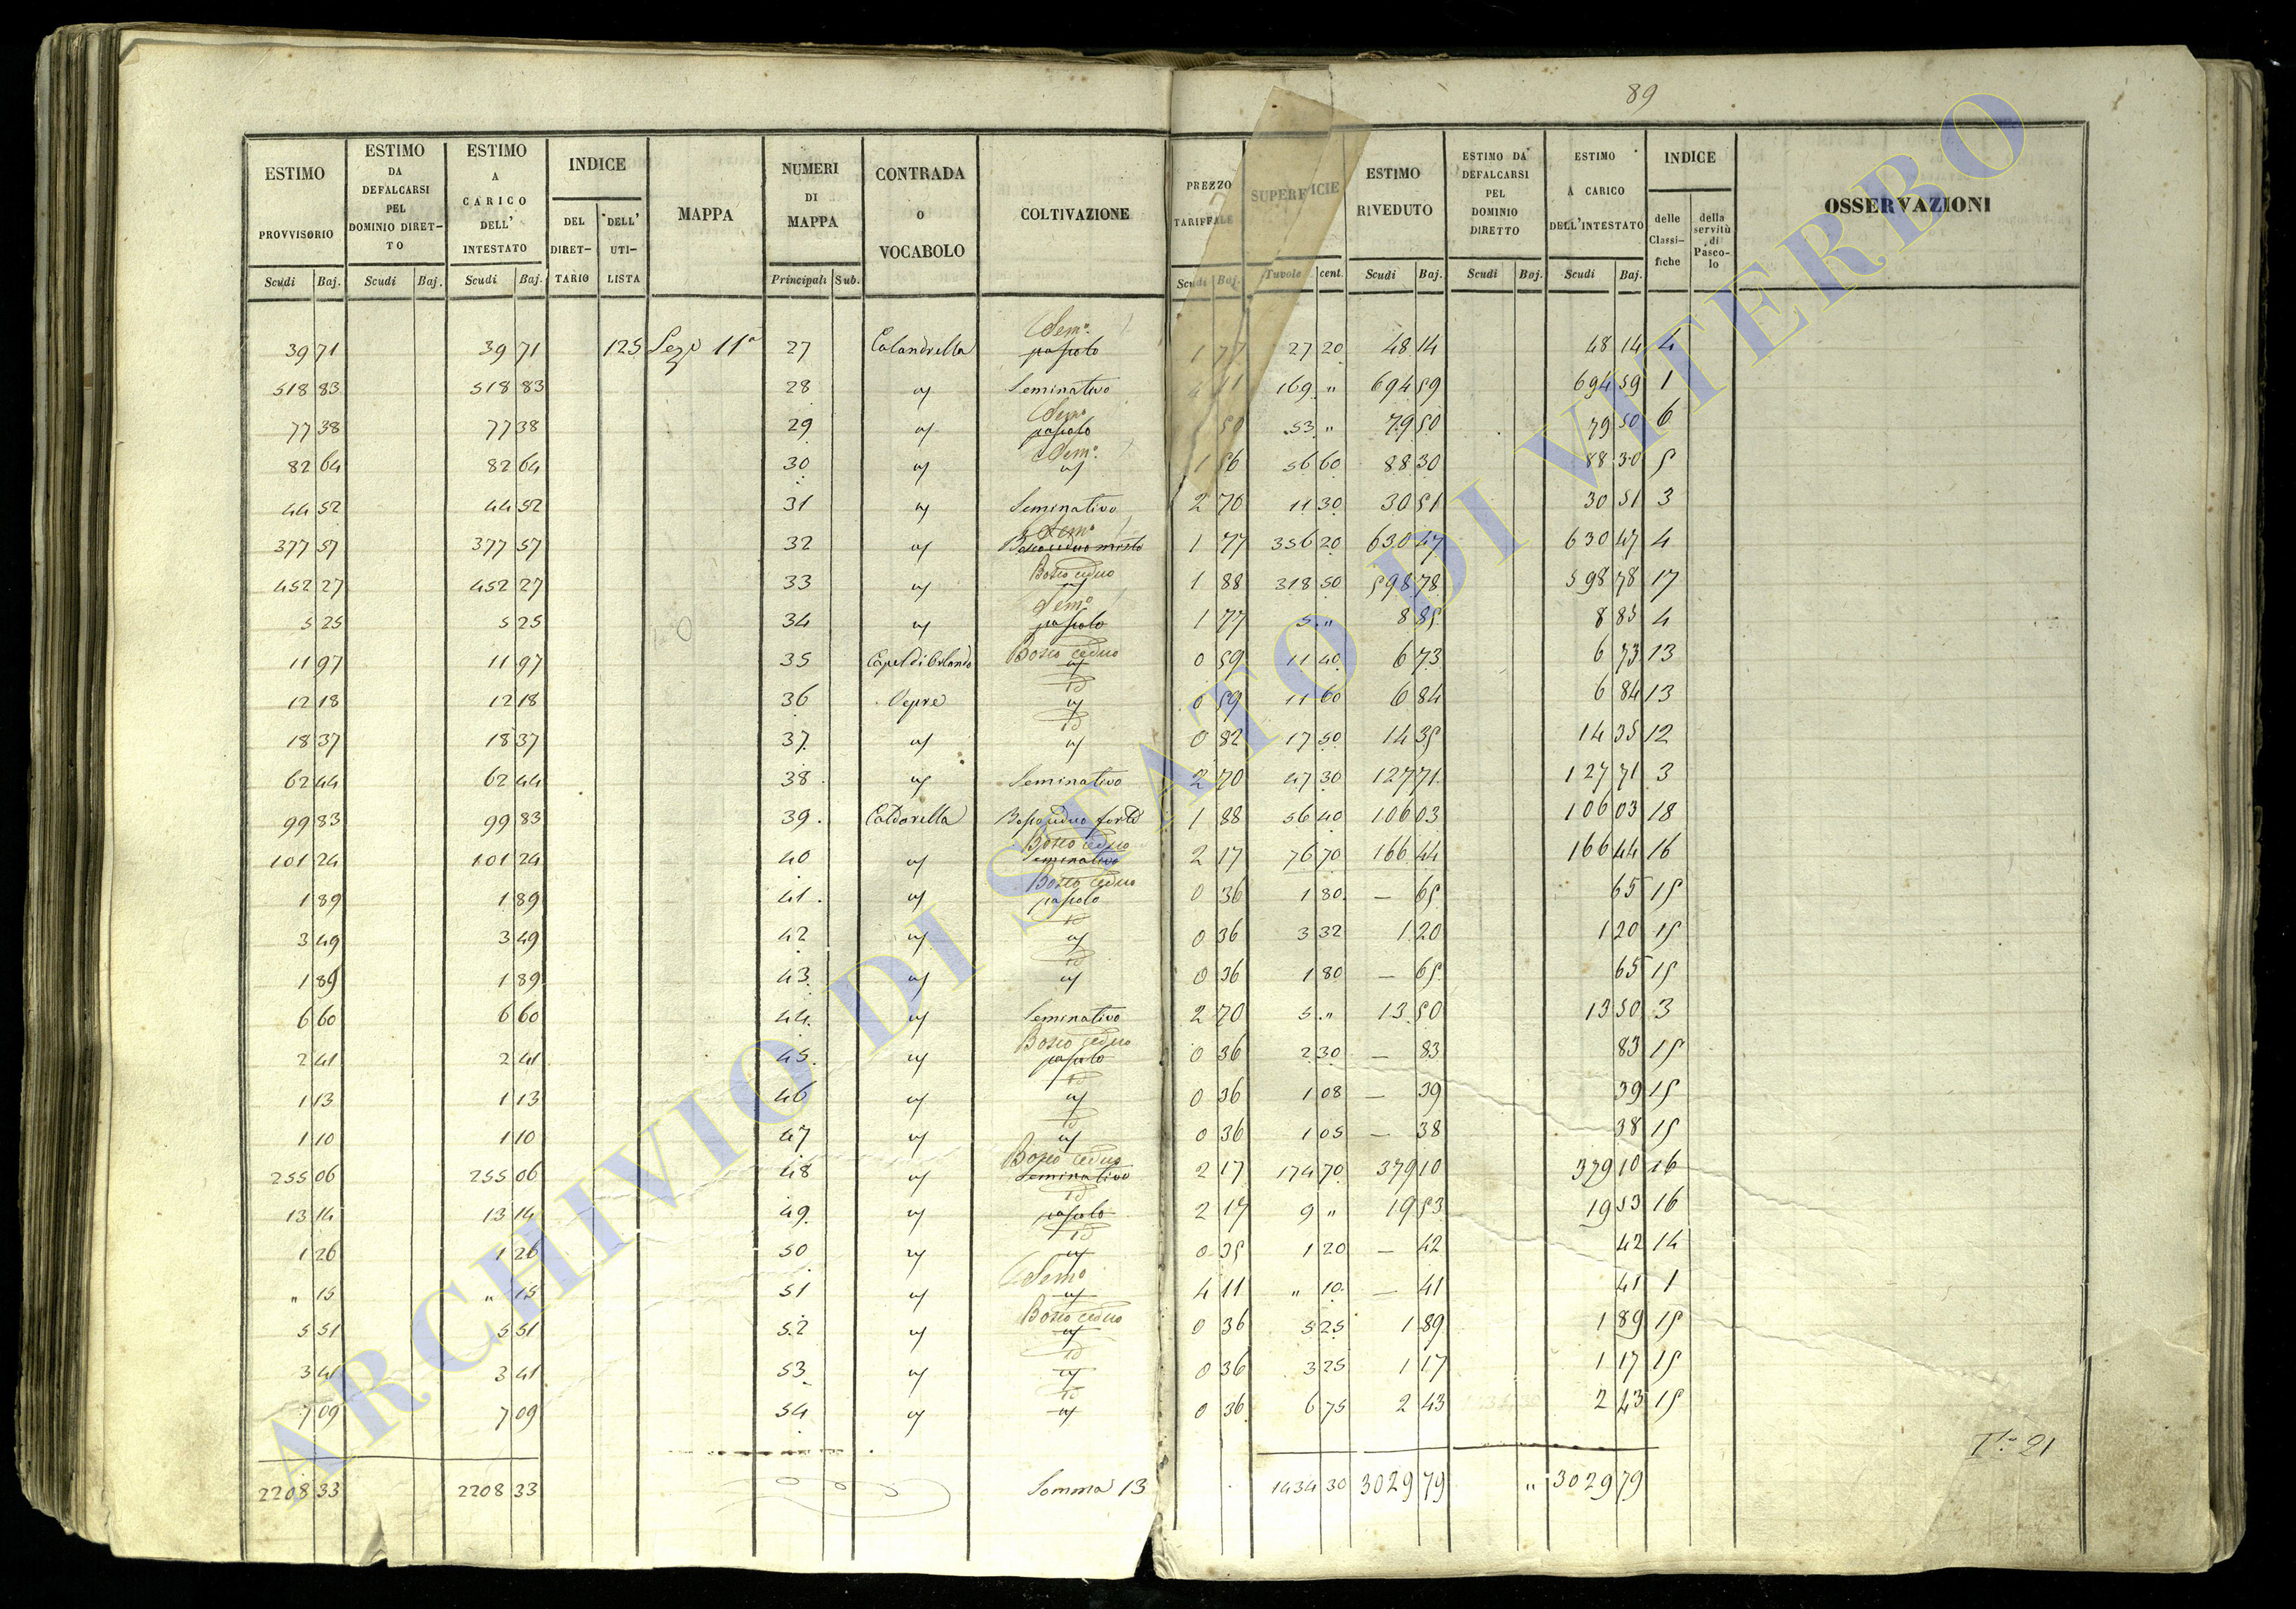 89
ESTIMO PROVVISORIO Scudi Baj. | ESTIMO DA DEFALCARSI PEL DOMINIO DIRETTO Scudi Baj. | ESTIMO A CARICO DELL' INTESTATO Scudi Baj. | INDICE DEL DIRETTARIO DELL' UTILISTA | MAPPA | NUMERI DI MAPPA Principali Sub. | CONTRADA O VOCABOLO | COLTIVAZIONE | PREZZO TARIFFALE Scudi Baj. | SUPERFICIE Tavole cent. | ESTIMO RIVEDUTO Scudi Baj. | ESTIMO DA DEFALCARSI PEL DOMINIO DIRETTO Scudi Baj. | ESTIMO A CARICO DELL'INTESTATO Scudi Baj. | INDICE delle Classifiche della servitù di Pascolo | OSSERVAZIONI
39 71 39 71 125 Sez. 11ª 27 Calandrella Semº pascolo 1 77 27 20 48 14 48 14 4
518 83 518 83 28 " Seminativo 4 11 169 " 694 59 694 59 1
77 38 77 38 29 " Semº pascolo 50 53 " 79 50 79 50 6
82 64 82 64 30 " Semº " 1 56 56 60 88 30 88 30 5
44 52 44 52 31 " Seminativo 2 70 11 30 30 51 30 51 3
377 57 377 57 32 " Semº Bosco ceduo misto 1 77 356 20 630 47 630 47 4
452 27 452 27 33 " Bosco ceduo " 1 88 318 50 598 78 598 78 17
5 25 5 25 34 " Semº pascolo 1 77 5 " 8 85 8 85 4
11 97 11 97 35 Bosco ceduo " 0 59 11 40 6 73 6 73 13
12 18 12 18 36 Vepre id " 0 59 11 60 6 84 6 84 13
18 37 18 37 37 " id " 0 82 17 50 14 35 14 35 12
62 44 62 44 38 " Seminativo 2 70 47 30 127 71 127 71 3
99 83 99 83 39 Caldarella Bosco ceduo forte 1 88 56 40 106 03 106 03 18
101 24 101 24 40 " Bosco ceduo Seminativo 2 17 76 70 166 44 166 44 16
1 89 1 89 41 " Bosco ceduo pascolo 0 36 1 80 — 65 65 15
3 49 3 49 42 " id " 0 36 3 32 1 20 1 20 15
1 89 1 89 43 " id " 0 36 1 80 — 65 65 15
6 60 6 60 44 " Seminativo 2 70 5 " 13 50 13 50 3
2 41 2 41 45 " Bosco ceduo pascolo 0 36 2 30 — 83 83 15
1 13 1 13 46 " id " 0 36 1 08 — 39 39 15
1 10 1 10 47 " id " 0 36 1 05 — 38 38 15
255 06 255 06 48 " Bosco ceduo Seminativo 2 17 174 70 379 10 379 10 16
13 14 13 14 49 " id pascolo 2 17 9 " 19 53 19 53 16
1 26 1 26 50 " id " 0 35 1 20 — 42 42 14
" 15 " 15 51 " Semº " 4 11 " 10 — 41 41 1
5 51 5 51 52 " Bosco ceduo " 0 36 5 25 1 89 1 89 15
3 41 3 41 53 " id " 0 36 3 25 1 17 1 17 15
7 09 7 09 54 " id " 0 36 6 75 2 43 2 43 15
21
2208 33 2208 33 Somma 13 1434 30 3029 79 " 3029 79
ARCHIVIO DI STATO DI VITERBO